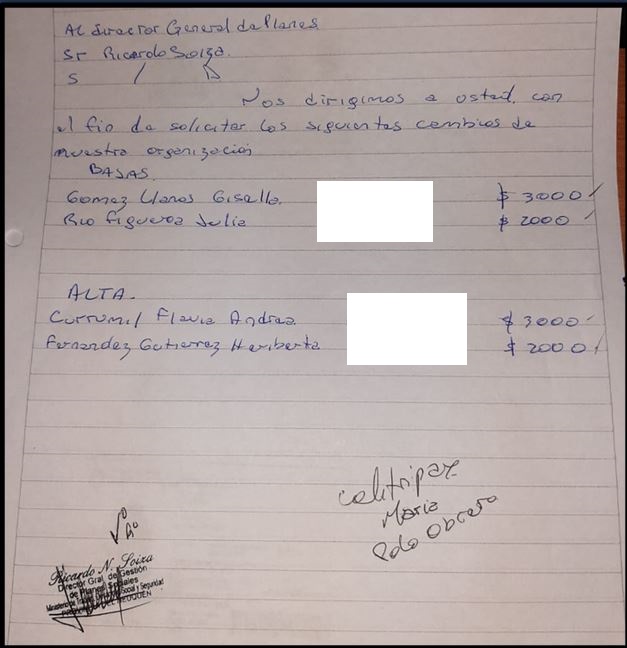 Al director General de Planes
Sr Ricardo Soiza.
S / D
Nos dirigimos a usted, con
el fin de solicitar los siguientes cambios de
nuestra organización
BAJAS.
Gomez Llanos Gisella. $ 3000
Rio Figueroa Julia $ 2000
ALTA.
Currumil Flavia Andrea. $ 3000
Fernandez Gutierrez Heriberta $ 2000
Calitripay
Maria
Polo Obrero
Vº Bº
Ricardo N. Soiza
Director Gral. de Gestión
de Planes Sociales
Ministerio de Trabajo, Desarrollo Social y Seguridad
PROVINCIA DEL NEUQUÉN